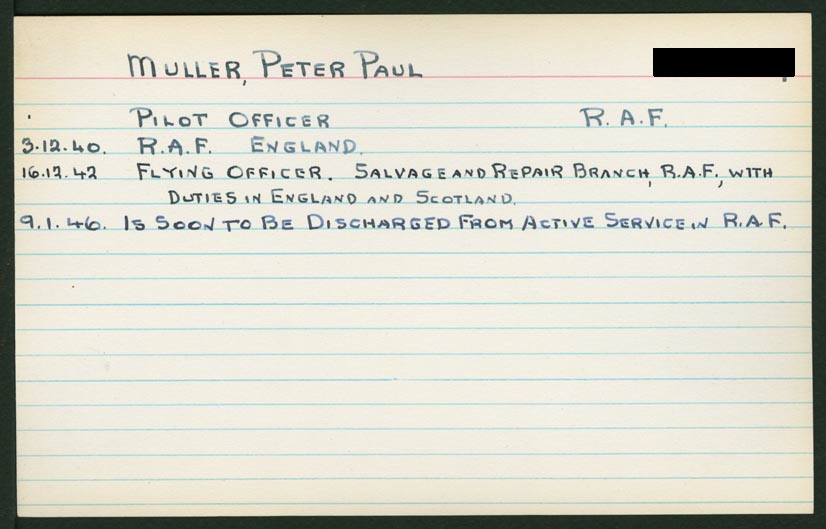 MULLER, PETER PAUL
PILOT OFFICER R.A.F.
3.12.40. R.A.F. ENGLAND.
16.12.42 FLYING OFFICER. SALVAGE AND REPAIR BRANCH, R.A.F., WITH
DUTIES IN ENGLAND AND SCOTLAND.
9.1.46. IS SOON TO BE DISCHARGED FROM ACTIVE SERVICE IN R.A.F.